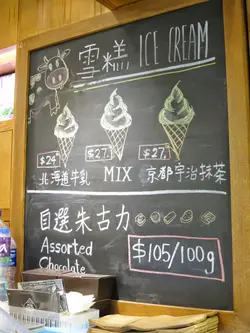 雪糕 ICE CREAM
$24 $27 $27
北海道牛乳 MIX 京都宇治抹茶
自選朱古力
Assorted
Chocolate
$105/100g